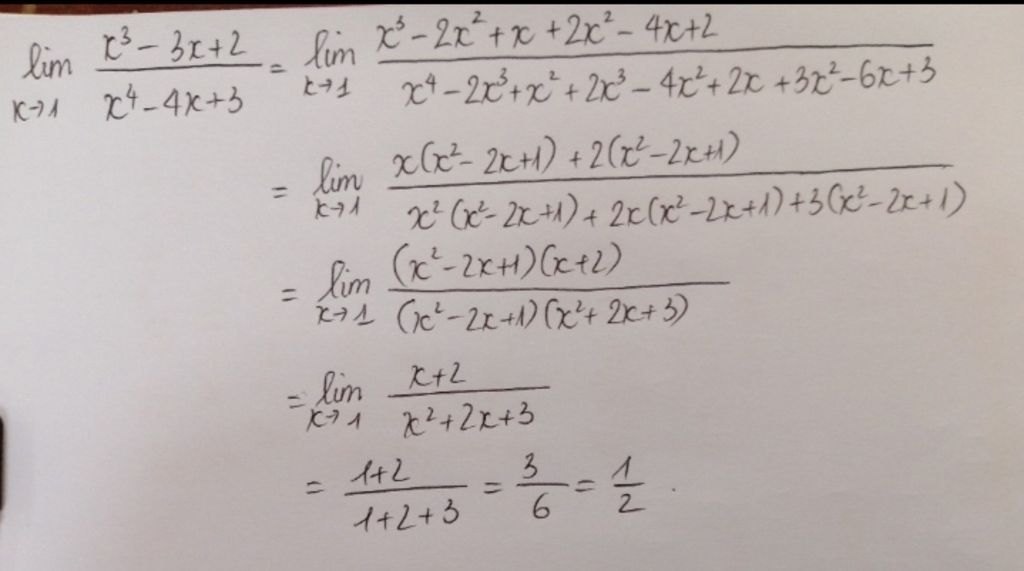 lim x→1 (x³ − 3x + 2)/(x⁴ − 4x + 3) = lim x→1 (x³ − 2x² + x + 2x² − 4x + 2)/(x⁴ − 2x³ + x² + 2x³ − 4x² + 2x + 3x² − 6x + 3)
= lim x→1 (x(x² − 2x + 1) + 2(x² − 2x + 1))/(x²(x² − 2x + 1) + 2x(x² − 2x + 1) + 3(x² − 2x + 1))
= lim x→1 ((x² − 2x + 1)(x + 2))/((x² − 2x + 1)(x² + 2x + 3))
= lim x→1 (x + 2)/(x² + 2x + 3)
= (1 + 2)/(1 + 2 + 3) = 3/6 = 1/2 .